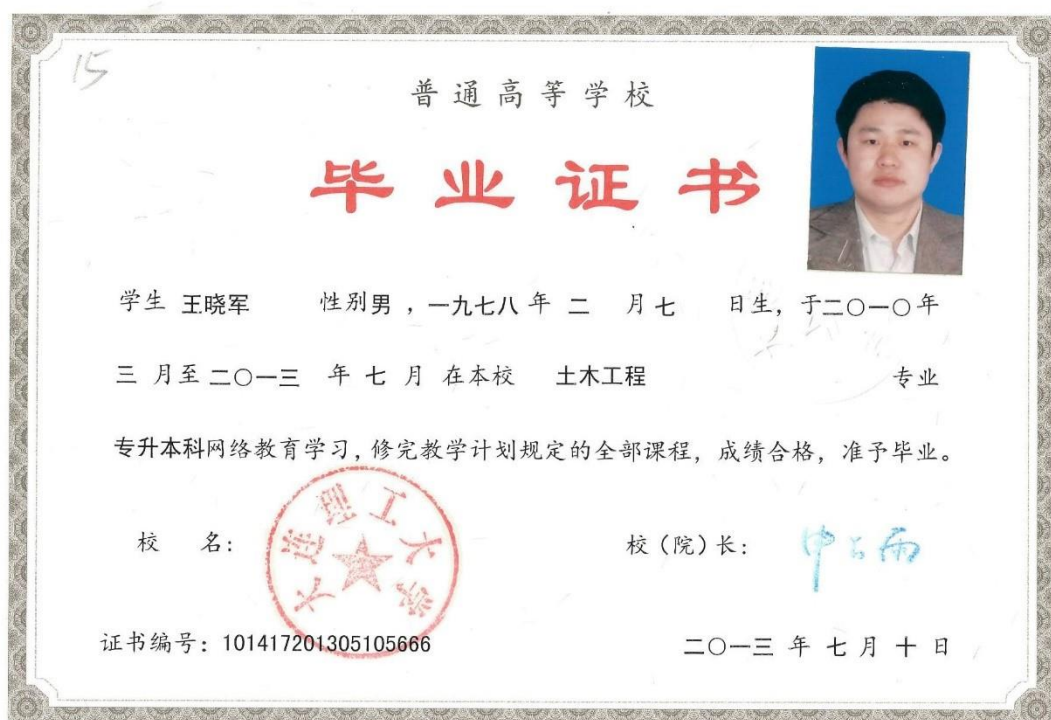 15
普通高等学校
毕业证书
学生 王晓军 性别男，一九七八年 二 月七 日生，于二〇一〇年
三 月至二〇一三 年 七 月 在本校 土木工程 专业
专升本科网络教育学习，修完教学计划规定的全部课程，成绩合格，准予毕业。
校 名：
大连理工大学
校（院）长：
证书编号：101417201305105666
二〇一三 年 七 月 十 日